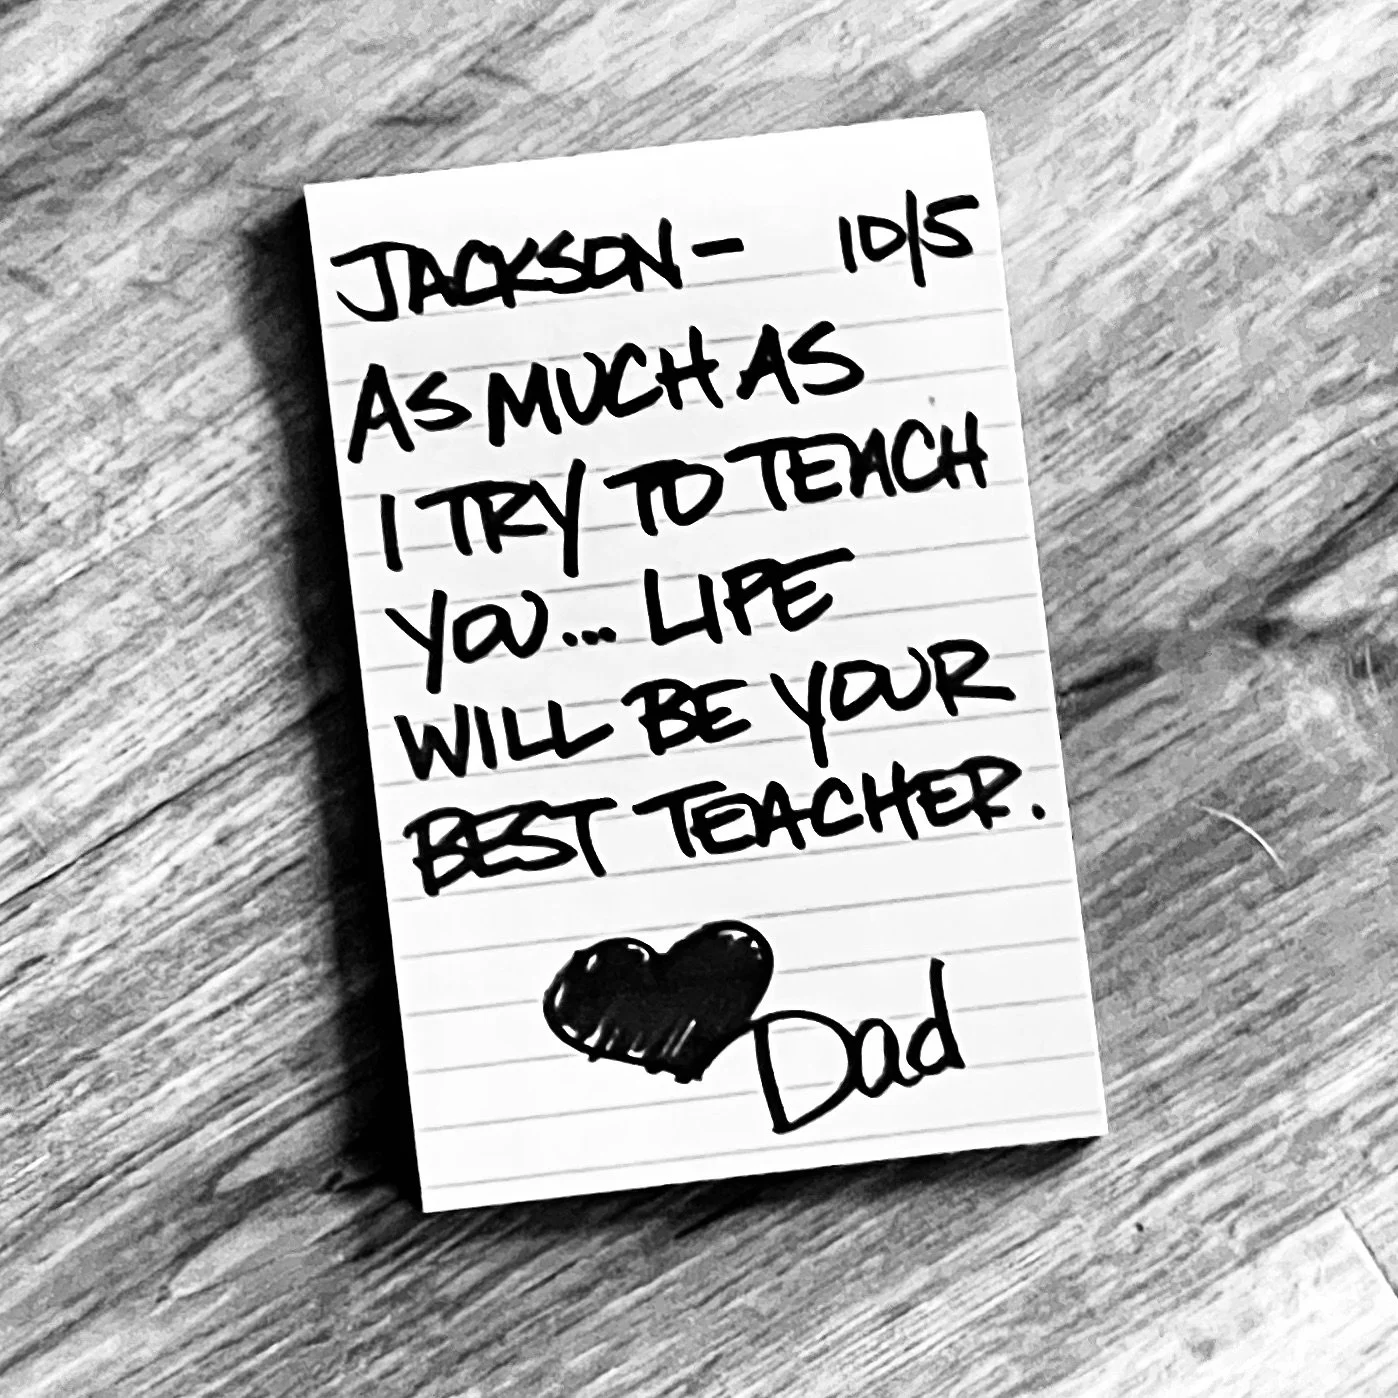 JACKSON- 10/5
AS MUCH AS
I TRY TO TEACH
YOU... LIFE
WILL BE YOUR
BEST TEACHER.
Dad